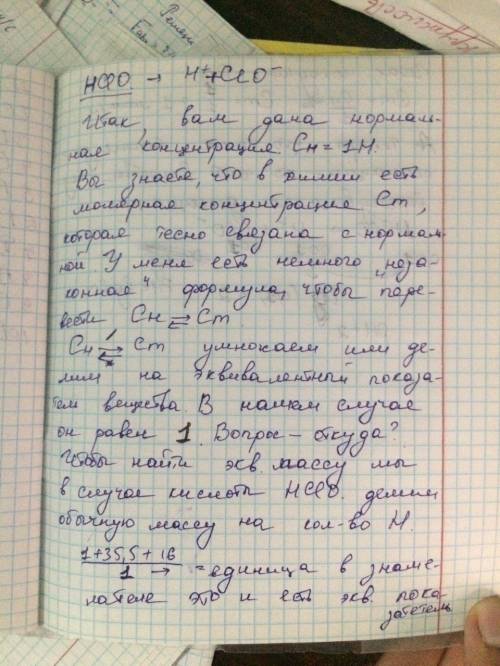 HClO → H⁺+ClO⁻
Итак, вам дана нормаль-
ная концентрация Cн = 1Н.
Вы знаете, что в химии есть
молярная концентрация Cm,
которая тесно связана с нормаль-
ной. У меня есть немного "неза-
конная" формула, чтобы пере-
вести Cн ⇄ Cm
Cн ⇄ Cm умножаем или де-
лим на эквивалентный показа-
тель вещества. В нашем случае
он равен 1. Вопрос – откуда?
Чтобы найти экв. массу мы
в случае кислоты HClO. делим
обычную массу на кол-во H.
1+35,5+16
1 → = единица в знаме-
нателе это и есть экв. пока-
зататель